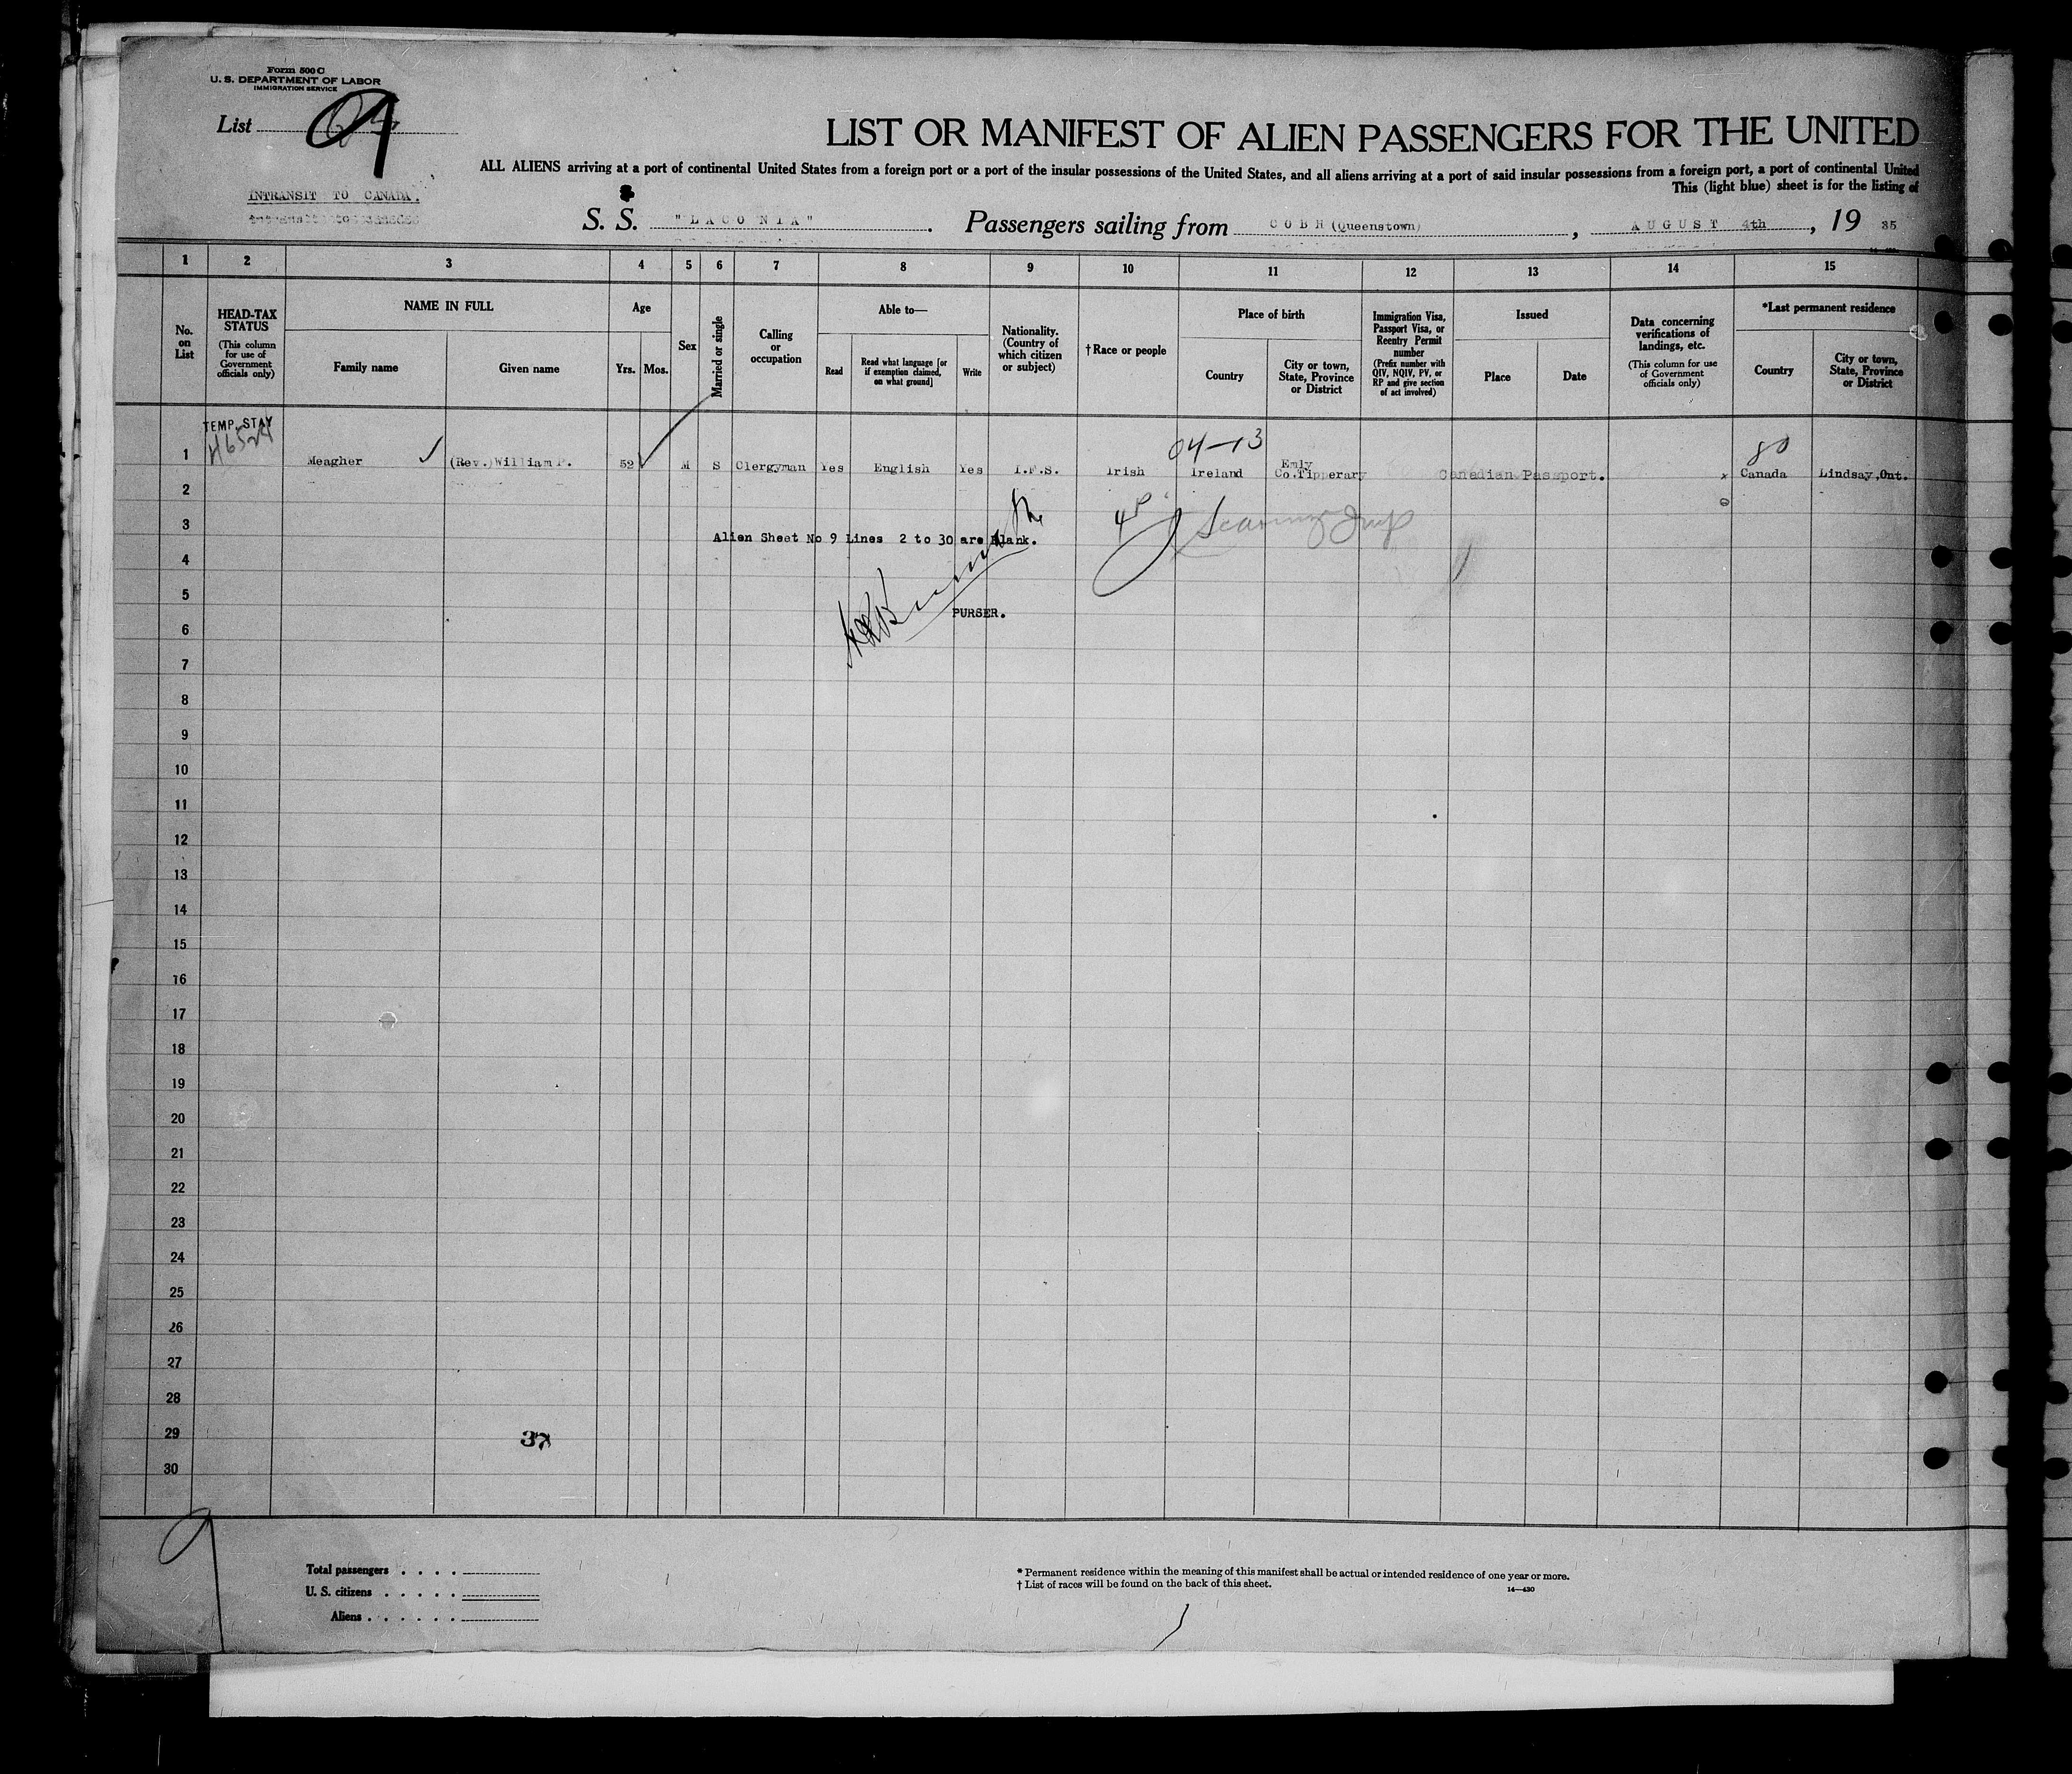 Form 500 C
U. S. DEPARTMENT OF LABOR
IMMIGRATION SERVICE
List 9
LIST OR MANIFEST OF ALIEN PASSENGERS FOR THE UNITED
ALL ALIENS arriving at a port of continental United States from a foreign port or a port of the insular possessions of the United States, and all aliens arriving at a port of said insular possessions from a foreign port, a port of continental United
This (light blue) sheet is for the listing of
INTRANSIT TO CANADA.
S. S. "LACONIA". Passengers sailing from COBH (Queenstown), AUGUST 4th, 19 35
1 2 3 4 5 6 7 8 9 10 11 12 13 14 15
No. on List
HEAD-TAX STATUS
(This column for use of Government officials only)
NAME IN FULL
Family name
Given name
Age
Yrs. Mos.
Sex
Married or single
Calling or occupation
Able to—
Read
Read what language [or if exemption claimed, on what ground]
Write
Nationality. (Country of which citizen or subject)
†Race or people
Place of birth
Country
City or town, State, Province or District
Immigration Visa, Passport Visa, or Reentry Permit number
(Prefix number with QIV, NQIV, PV, or RP and give section of act involved)
Issued
Place
Date
Data concerning verifications of landings, etc.
(This column for use of Government officials only)
*Last permanent residence
Country
City or town, State, Province or District
TEMP. STAY
04-13
80
1 Meagher (Rev.) William P. 52 M S Clergyman Yes English Yes I.F.S. Irish Ireland Emly Co.Tipperary Canadian Passport. x Canada Lindsay, Ont.
2
3
Alien Sheet No 9 Lines 2 to 30 are Blank.
4
5
PURSER.
6
7
8
9
10
11
12
13
14
15
16
17
18
19
20
21
22
23
24
25
26
27
28
29
30
9
Total passengers . . . .
U. S. citizens . . . . .
Aliens . . . . . .
* Permanent residence within the meaning of this manifest shall be actual or intended residence of one year or more.
† List of races will be found on the back of this sheet.
14—430